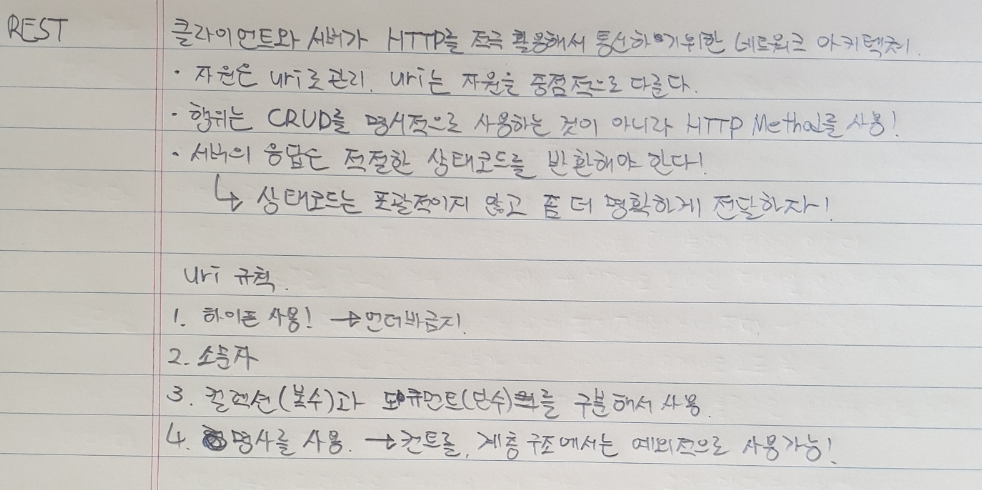 REST 클라이언트와 서버가 HTTP를 적극 활용해서 통신하기위한 네트워크 아키텍처.
· 자원은 uri로 관리. uri는 자원을 중점적으로 다룬다.
· 행위는 CRUD를 명시적으로 사용하는 것이 아니라 HTTP Method를 사용!
· 서버의 응답은 적절한 상태코드를 반환해야 한다!
↳ 상태코드는 포괄적이지 않고 좀 더 명확하게 전달하자!
uri 규칙.
1. 하이픈 사용! → 언더바금지.
2. 소문자
3. 컬렉션(복수)과 도큐먼트(단수)를 구분해서 사용.
4. 명사를 사용. → 컨트롤, 계층구조에서는 예외적으로 사용가능!